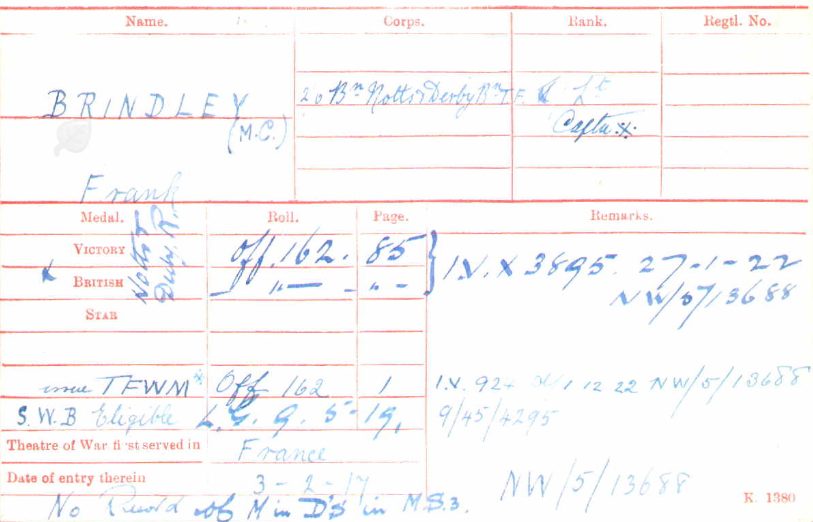 Name. Corps. Rank. Regtl. No.
BRINDLEY 20 Bn Notts & Derby R T.F. Lt
(M.C.) Capt x.
Frank
Medal. Roll. Page. Remarks.
VICTORY Off. 162. 85 I.V. X 3895. 27-1-22
x BRITISH Notts & Derby. R. " — " - NW/5/13688
STAR
issue TFWM Off 162 1 I.V. 1 12 22 NW/5/13688
S.W.B Eligible L.G. 9. 5-19. 9/45/4295
Theatre of War first served in France
Date of entry therein 3-2-17 NW/5/13688
No Record of M in D's in M.S.3. K. 1380